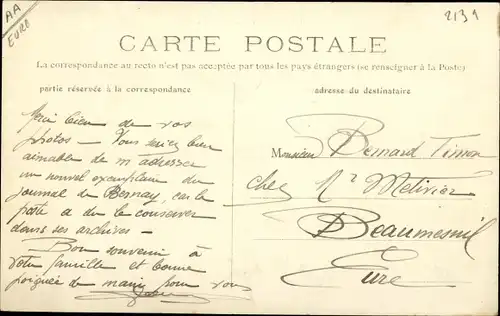 AA
EURO
2131
CARTE POSTALE
La correspondance au recto n'est pas acceptée par tous les pays étrangers (se renseigner à la Poste)
partie réservée à la correspondance
adresse du destinataire
Merci bien de vos
photos — Vous seriez bien
aimable de m'adresser
un nouvel exemplaire du
journal de Bernay, car la
poste a du le conserver
dans ses archives —
Bon souvenir à
votre famille et bonne
poignée de main pour vous
Monsieur Bernard Timon
chez Mr Métivier
Beaumesnil
Eure